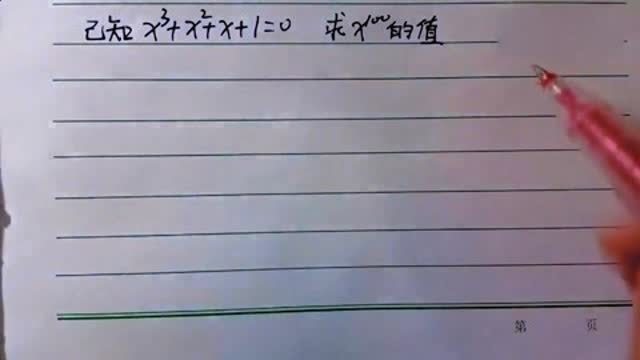 已知 x³+x²+x+1=0 求 x¹⁰⁰的值
第 页